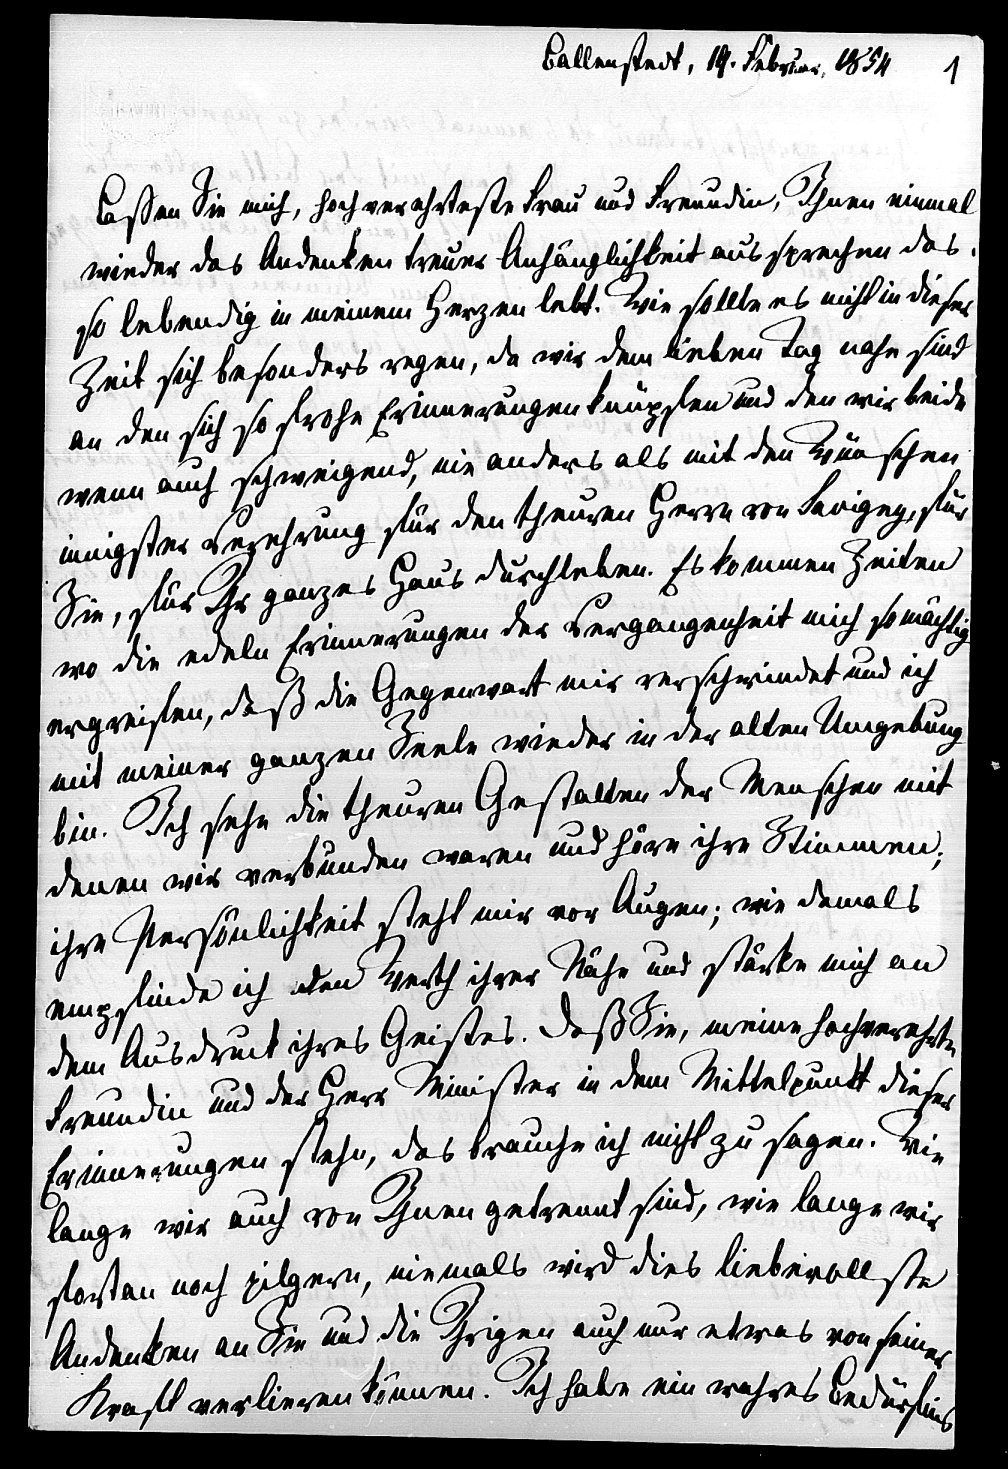 Ballenstedt, 19. Februar, 1854
1
Lassen Sie mich, hochverehrteste Frau und Freundin, Ihnen einmal
wieder das Andenken treuer Anhänglichkeit aussprechen das
so lebendig in meinem Herzen lebt. Wie sollte es nicht in dieser
Zeit sich besonders regen, da wir dem lieben Tag nahe sind
an den sich so frohe Erinnerungen knüpfen und den wir beide
wenn auch schweigend, nie anders als mit den Wünschen
innigster Verehrung für den theuren Herrn von Savigny, für
Sie, für Ihr ganzes Haus durchleben. Es kommen Zeiten
wo die edeln Erinnerungen der Vergangenheit mich so mächtig
ergreifen, daß die Gegenwart mir verschwindet und ich
mit meiner ganzen Seele wieder in der alten Umgebung
bin. Ich sehe die theuren Gestalten der Menschen mit
denen wir verbunden waren und höre ihre Stimmen;
ihre Persönlichkeit steht mir vor Augen; wie damals
empfinde ich den Werth ihrer Nähe und stärke mich an
dem Ausdruck ihres Geistes. Daß Sie, meine hochverehrte
Freundin und der Herr Minister in dem Mittelpunkt dieser
Erinnerungen stehn, das brauche ich nicht zu sagen. Wie
lange wir auch von Ihnen getrennt sind, wie lange wir
fortan noch pilgern, niemals wird dies liebevollste
Andenken an Sie und die Ihrigen auch nur etwas von seiner
Kraft verlieren können. Ich habe ein wahres Bedürfnis